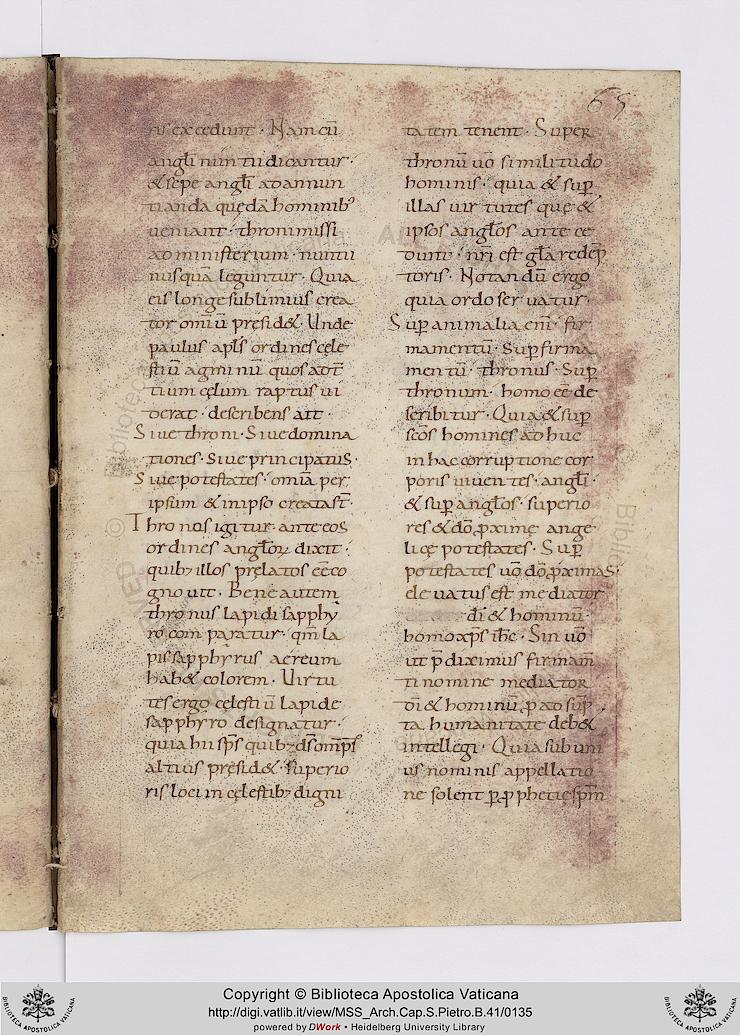 65
ris excedunt · Nam cū
angłi nuntii dicantur ·
& sępe angłi ad annun
tianda quędā hominib;
veniant · throni missi
ad ministerium · nuntii
nusquā leguntur · Quia
eis longe sublimius crea
tor omiū pręsid& · Unde
paulus apłs ordines cęle
stiū agminū quos ad t̄
tium cęlum raptus vi
derat · describens ait ·
Sive throni · Sive domina
tiones · Sive principatus ·
Sive potestates · omia per
ipsum & in ipso creata st̄ ·
Thronos igitur · ante eos
ordines angłoꝝ dixit ·
quib; illos pręlatos eē co
gnovit · Bene autem
thronus lapidi sapphy
ro comparatur · qm̄ la
pis sapphyrus aereum
hab& colorem · Virtu
tes ergo cęlestiū lapide
sapphyro designatur ·
quia hii sps̄ quib; ds̄ omps̄
altius pręsid& · superio
ris loci in cęlestib; digni
tatem tenent · Super
thronū v̄o similitudo
hominis · quia & sup̄
illas virtutes quę &
ipsos angłos ante ce
dunt · nr̄i est gła redēp
toris · Notandū ergo
quia ordo servatur ·
Sup̄ animalia eni͞ · fir
mamentū · Sup̄ firma
mentū · thronus · Sup̄
thronum · homo eē de
scribitur · Quia & sup̄
sc̄os homines adhuc
in hac corruptione cor
poris viventes · angłi ·
& sup̄ angłos · superio
res & dō ꝓximę ange
licę potestates · Sup̄
potestates v̄o dō ꝓximas ·
elevatus est mediator
dī & hominū ·
homo xp̄s ihc̄ · Sin v̄o
ut p̄diximus firmam̄
ti nomine mediator
dī & hominū ꝓ adsūp
ta humanitate deb&
intellegi · Quia sub uni
us nominis appellatio
ne solent ꝑ ꝓphetię spm̄
Copyright © Biblioteca Apostolica Vaticana
http://digi.vatlib.it/view/MSS_Arch.Cap.S.Pietro.B.41/0135
powered by DWork • Heidelberg University Library